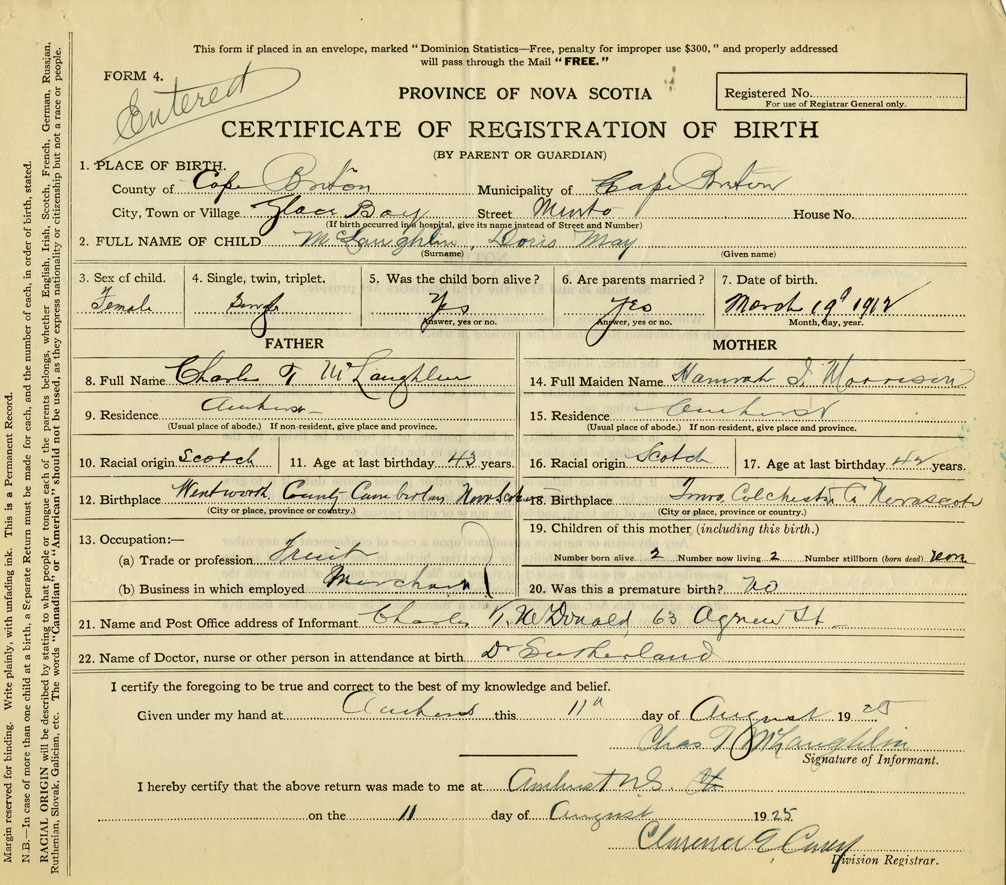 This form if placed in an envelope, marked "Dominion Statistics—Free, penalty for improper use $300," and properly addressed
will pass through the Mail "FREE."
FORM 4.
Entered
PROVINCE OF NOVA SCOTIA
Registered No.
For use of Registrar General only.
CERTIFICATE OF REGISTRATION OF BIRTH
(BY PARENT OR GUARDIAN)
1. PLACE OF BIRTH.
County of Cape Briton Municipality of Cape Briton
City, Town or Village Glace Bay Street Minto House No.
(If birth occurred in a hospital, give its name instead of Street and Number)
2. FULL NAME OF CHILD McLaughlin, Doris May
(Surname) (Given name)
3. Sex of child. 4. Single, twin, triplet. 5. Was the child born alive? 6. Are parents married? 7. Date of birth.
Female Single Yes Yes March 19 1912
Answer, yes or no. Answer, yes or no. Month, day, year.
FATHER MOTHER
8. Full Name Charles T McLaughlin 14. Full Maiden Name Hannah I. Morrison
9. Residence Amherst 15. Residence Amherst
(Usual place of abode.) If non-resident, give place and province. (Usual place of abode.) If non-resident, give place and province.
10. Racial origin Scotch 11. Age at last birthday 43 years. 16. Racial origin Scotch 17. Age at last birthday 42 years.
12. Birthplace Wentworth County Nova Scotia 18. Birthplace Colchester Co Novascot
(City or place, province or country.) (City or place, province or country.)
19. Children of this mother (including this birth.)
13. Occupation:—
(a) Trade or profession Fruit
Number born alive 2 Number now living 2 Number stillborn (born dead) non
(b) Business in which employed Merchant 20. Was this a premature birth? no
21. Name and Post Office address of Informant Charles T. McDonald, 63 Agnew St
22. Name of Doctor, nurse or other person in attendance at birth Dr Sutherland
I certify the foregoing to be true and correct to the best of my knowledge and belief.
Given under my hand at Amherst this 11th day of August 19 25
Chas T McLaughlin
Signature of Informant.
I hereby certify that the above return was made to me at Amherst N.S.
on the 11 day of August 1925
Clarence E Casey
Division Registrar.
Margin reserved for binding. Write plainly, with unfading ink. This is a Permanent Record.
N.B.—In case of more than one child at a birth, a Separate Return must be made for each, and the number of each, in order of birth, stated.
RACIAL ORIGIN will be described by stating to what people or tongue each of the parents belongs, whether English, Irish, Scotch, French, German, Russian,
Ruthenian, Slovak, Galician, etc. The words "Canadian" or "American" should not be used, as they express nationality or citizenship but not a race or people.